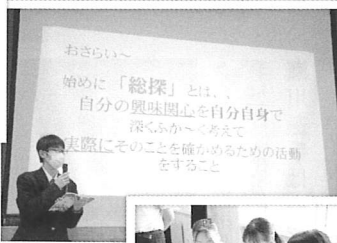 おさらい〜
始めに「総探」とは、、
自分の興味関心を自分自身で
深くふか〜く考えて
実際にそのことを確かめるための活動
をすること